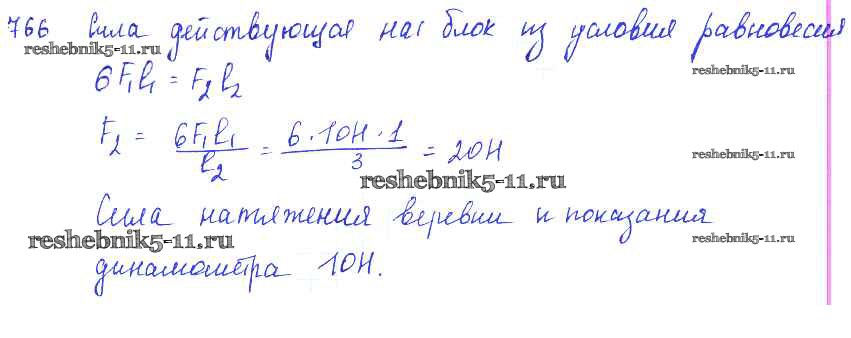 766 Сила действующая на блок из условия равновесия
reshebnik5-11.ru
reshebnik5-11.ru
6F₁l₁ = F₂l₂
F₂ = 6F₁l₁/l₂ = 6·10H·1/3 = 20H
reshebnik5-11.ru
reshebnik5-11.ru
Сила натяжения веревки и показания
reshebnik5-11.ru
reshebnik5-11.ru
динамометра 10H.